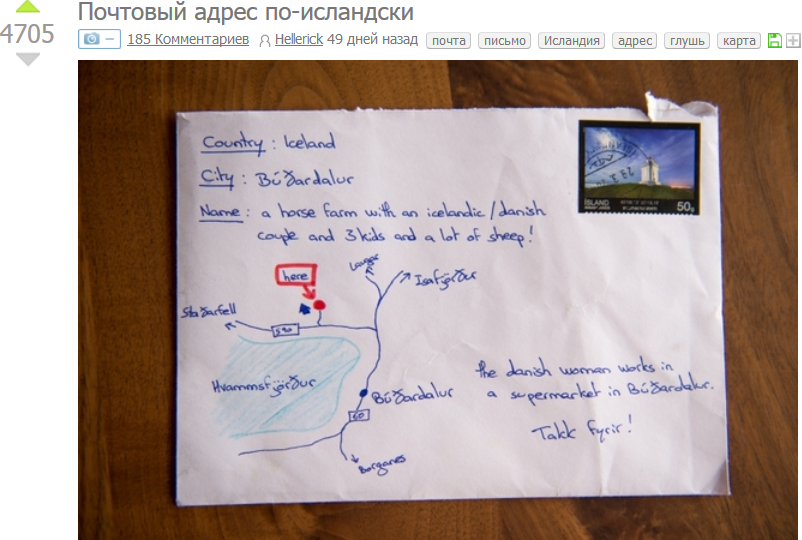 Почтовый адрес по-исландски
4705
185 Комментариев Hellerick 49 дней назад почта письмо Исландия адрес глушь карта
Country : Iceland
City : Búðardalur
Name : a horse farm with an icelandic/danish
couple and 3 kids and a lot of sheep!
ÍSLAND
50g
here
Laugar
Isafjörður
Staðarfell
590
Hvammsfjörður
Búðardalur
60
Borganes
the danish woman works in
a supermarket in Búðardalur.
Takk fyrir!